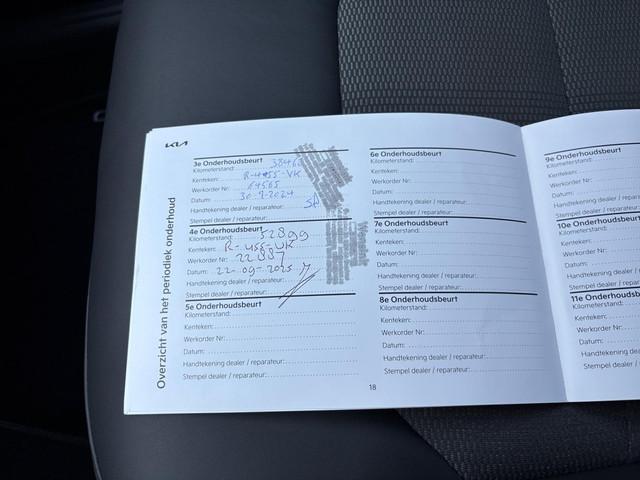 KIA
Overzicht van het periodiek onderhoud
3e Onderhoudsbeurt
Kilometerstand: 38460
Kenteken: R-455-VK
Werkorder Nr:
Datum: 30-7-2024
Handtekening dealer / reparateur:
Stempel dealer / reparateur:
4e Onderhoudsbeurt
Kilometerstand: 52899
Kenteken: R-455-VK
Werkorder Nr: 22887
Datum: 22-09-2025
Handtekening dealer / reparateur:
Stempel dealer / reparateur:
5e Onderhoudsbeurt
Kilometerstand:
Kenteken:
Werkorder Nr:
Datum:
Handtekening dealer / reparateur:
Stempel dealer / reparateur:
6e Onderhoudsbeurt
Kilometerstand:
Kenteken:
Werkorder Nr:
Datum:
Handtekening dealer / reparateur:
Stempel dealer / reparateur:
7e Onderhoudsbeurt
Kilometerstand:
Kenteken:
Werkorder Nr:
Datum:
Handtekening dealer / reparateur:
Stempel dealer / reparateur:
8e Onderhoudsbeurt
Kilometerstand:
Kenteken:
Werkorder Nr:
Datum:
Handtekening dealer / reparateur:
Stempel dealer / reparateur:
18
9e Onderhoudsbeurt
Kilometerstand:
Kenteken:
Werkorder Nr:
Datum:
Handtekening dealer
Stempel dealer / repa
10e Onderhoudsbeurt
Kilometerstand:
Kenteken:
Werkorder Nr:
Datum:
Handtekening dealer / r
Stempel dealer / repara
11e Onderhoudsbeu
Kilometerstand:
Kenteken:
Werkorder Nr:
Datum:
Handtekening dealer / r
Stempel dealer / repar